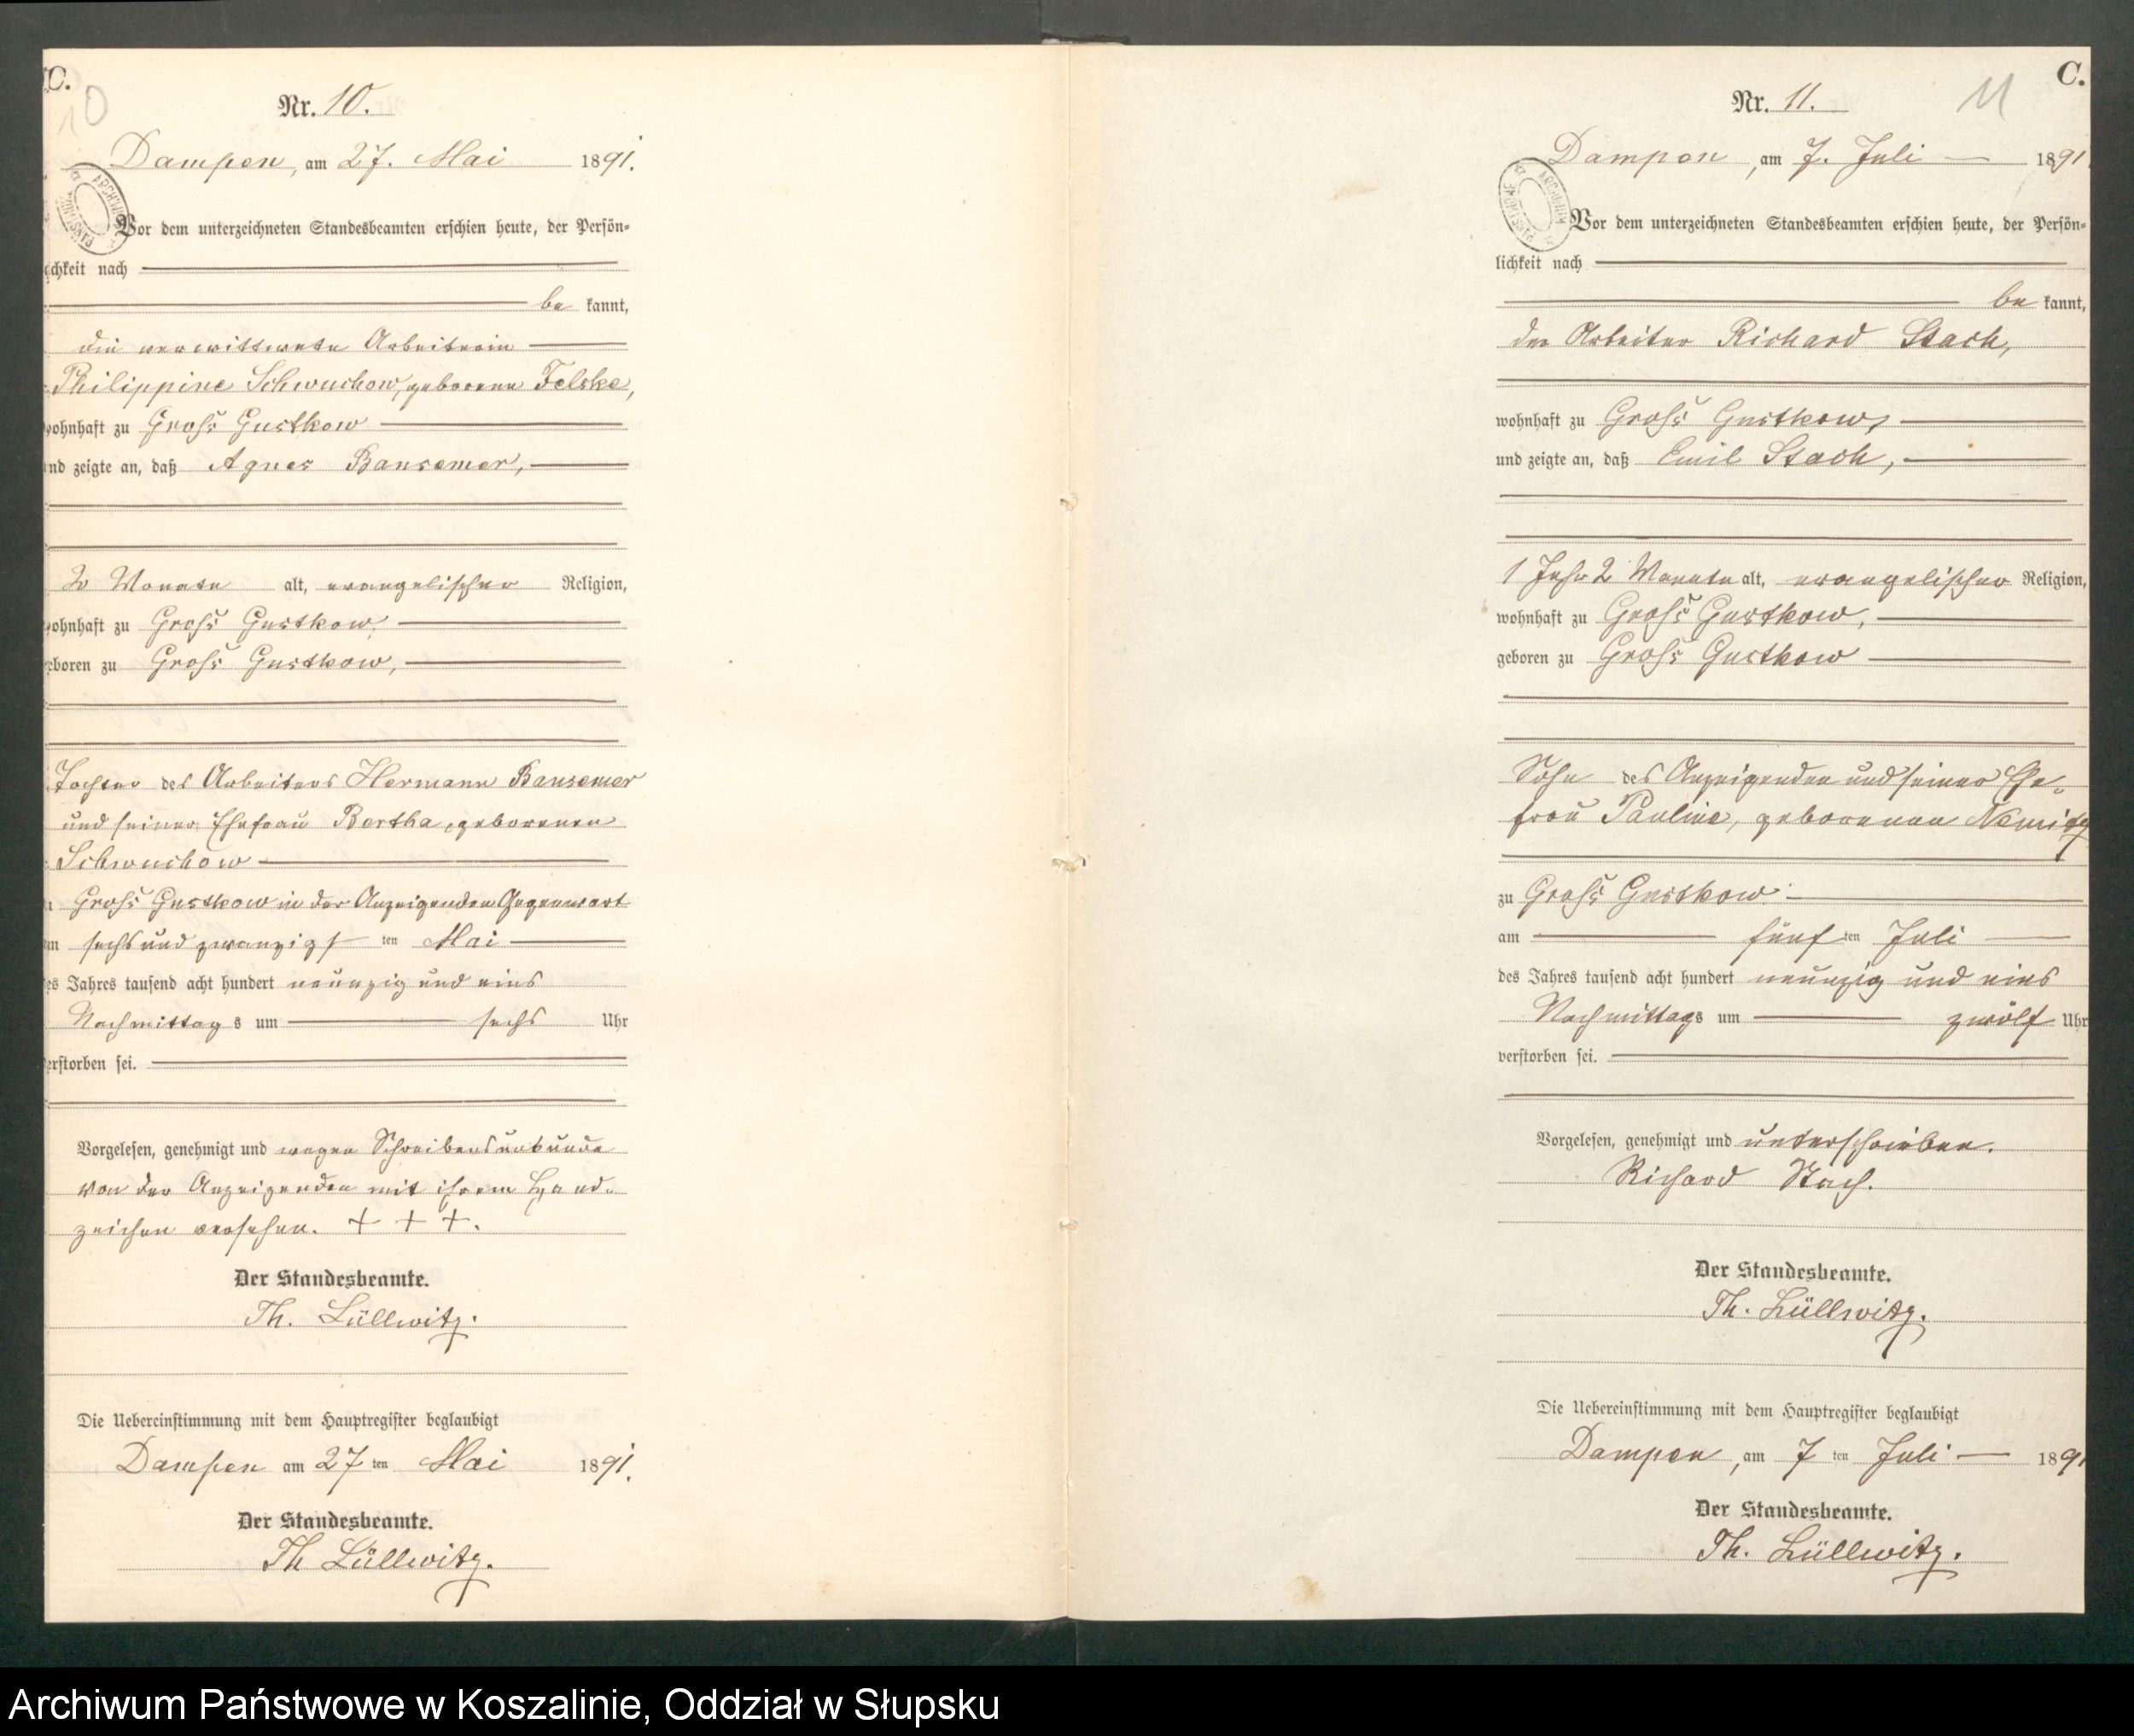 C.
10
Nr. 10.
Dampen, am 27. Mai 1891.
Vor dem unterzeichneten Standesbeamten erschien heute, der Persön-
chkeit nach
be kannt,
die verwittwete Arbeiterin
Philippine Schwuchow, geborene Felske,
wohnhaft zu Groß Gustkow
und zeigte an, daß Agnes Bansemer,
Monate alt, evangelischer Religion,
wohnhaft zu Groß Gustkow,
eboren zu Groß Gustkow,
Tochter des Arbeiters Hermann Bansemer
und seiner Ehefrau Bertha, geborenen
Schwuchow
Groß Gustkow in der Anzeigenden Gegenwart
sechs und zwanzigsten Mai
es Jahres tausend acht hundert neunzig und eins
Nachmittags um sechs Uhr
erstorben sei.
Vorgelesen, genehmigt und wegen Schreibensunkunde
von der Anzeigenden mit ihrem Hand-
zeichen versehen. + + +.
Der Standesbeamte.
Th. Lüllwitz.
Die Uebereinstimmung mit dem Hauptregister beglaubigt
Dampen am 27 ten Mai 1891.
Der Standesbeamte.
Th Lüllwitz.
C.
11
Nr. 11.
Dampen, am 7. Juli 1891
Vor dem unterzeichneten Standesbeamten erschien heute, der Persön-
lichkeit nach
be kannt,
der Arbeiter Richard Stach,
wohnhaft zu Groß Gustkow,
und zeigte an, daß Emil Stach,
1 Jahr 2 Monate alt, evangelischer Religion,
wohnhaft zu Groß Gustkow,
geboren zu Groß Gustkow
Sohn des Anzeigenden und seiner Ehe-
frau Pauline, geborenen Nemitz
zu Groß Gustkow
am fünften Juli
des Jahres tausend acht hundert neunzig und eins
Nachmittags um zwölf Uhr
verstorben sei.
Vorgelesen, genehmigt und unterschrieben.
Richard Stach.
Der Standesbeamte.
Th. Lüllwitz.
Die Uebereinstimmung mit dem Hauptregister beglaubigt
Dampen, am 7 ten Juli 1891
Der Standesbeamte.
Th. Lüllwitz.
Archiwum Państwowe w Koszalinie, Oddział w Słupsku